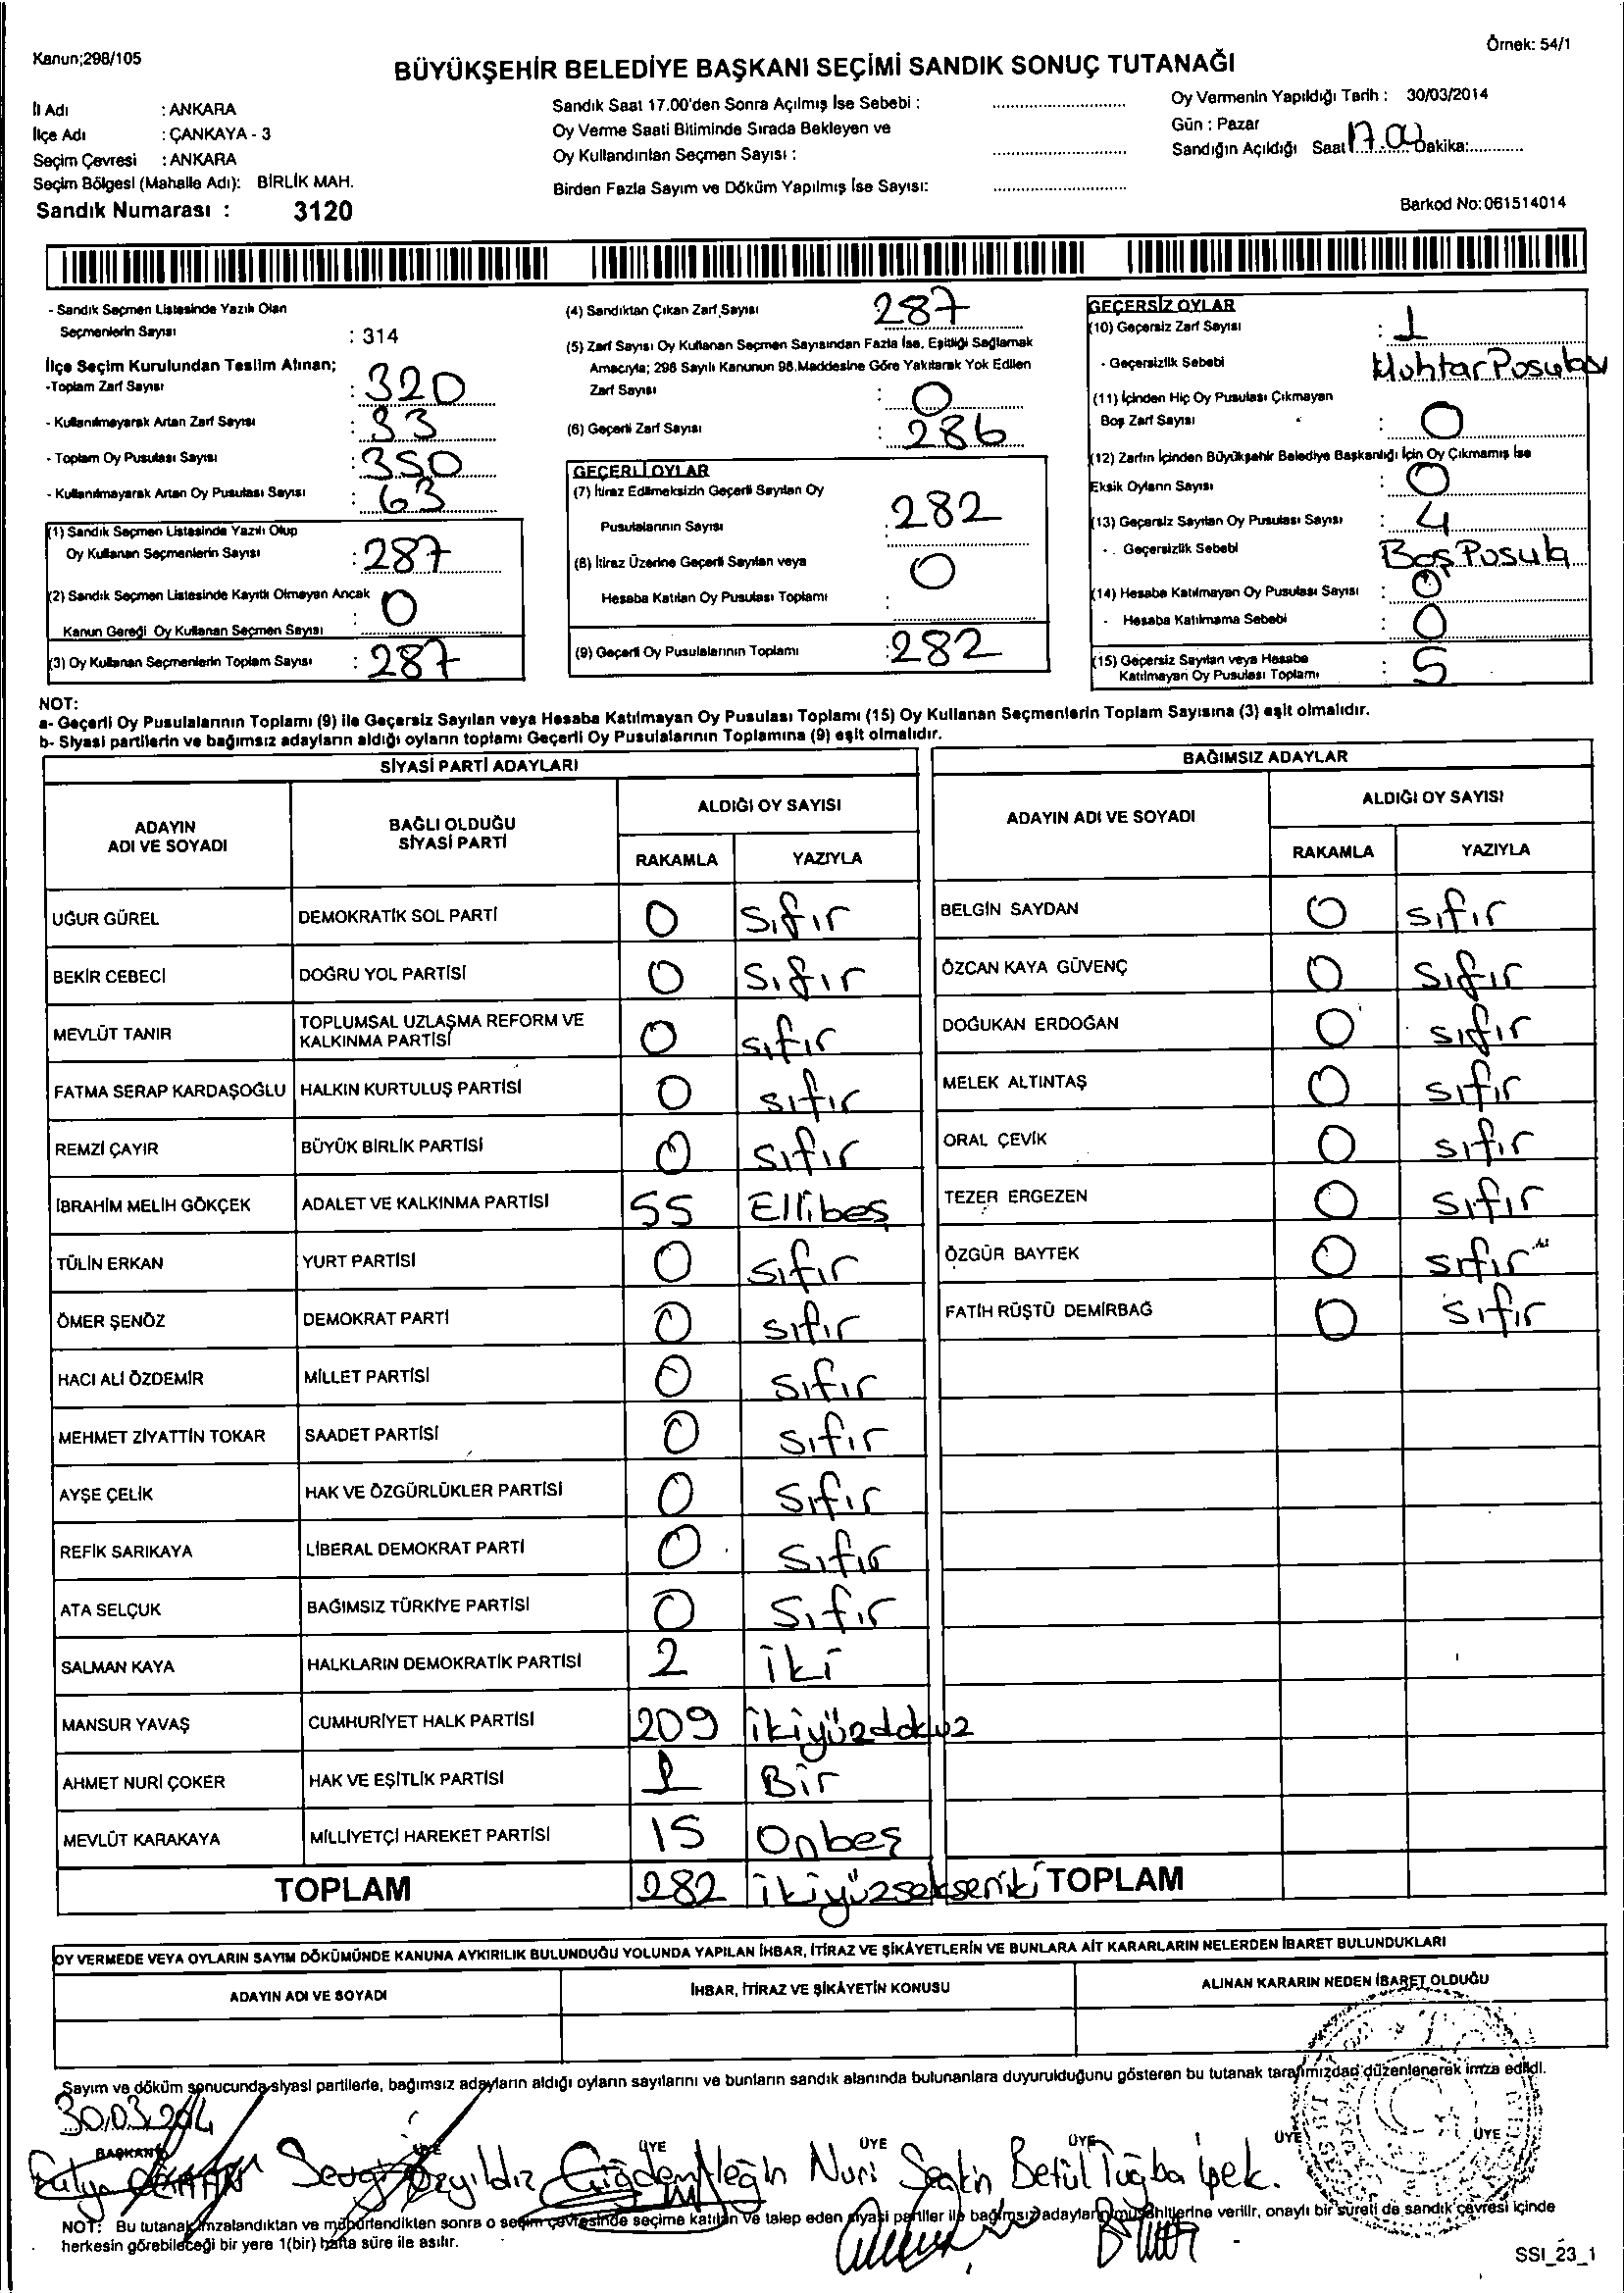 Kanun;298/105
Örnek: 54/1
BÜYÜKŞEHİR BELEDİYE BAŞKANI SEÇİMİ SANDIK SONUÇ TUTANAĞI
İl Adı : ANKARA
İlçe Adı : ÇANKAYA - 3
Seçim Çevresi : ANKARA
Seçim Bölgesi (Mahalle Adı): BİRLİK MAH.
Sandık Numarası : 3120
Sandık Saat 17.00'den Sonra Açılmış İse Sebebi :
Oy Verme Saati Bitiminde Sırada Bekleyen ve
Oy Kullandırılan Seçmen Sayısı :
Birden Fazla Sayım ve Döküm Yapılmış İse Sayısı:
Oy Vermenin Yapıldığı Tarih : 30/03/2014
Gün : Pazar
Sandığın Açıldığı Saat 17.00 Dakika:
Barkod No:061514014
- Sandık Seçmen Listesinde Yazılı Olan
Seçmenlerin Sayısı : 314
İlçe Seçim Kurulundan Teslim Alınan;
-Toplam Zarf Sayısı : 320
- Kullanılmayarak Artan Zarf Sayısı : 33
- Toplam Oy Pusulası Sayısı : 350
- Kullanılmayarak Artan Oy Pusulası Sayısı : 63
(1) Sandık Seçmen Listesinde Yazılı Olup
Oy Kullanan Seçmenlerin Sayısı : 287
(2) Sandık Seçmen Listesinde Kayıtlı Olmayan Ancak
Kanun Gereği Oy Kullanan Seçmen Sayısı : 0
(3) Oy Kullanan Seçmenlerin Toplam Sayısı : 287
(4) Sandıktan Çıkan Zarf Sayısı 287
(5) Zarf Sayısı Oy Kullanan Seçmen Sayısından Fazla İse, Eşitliği Sağlamak
Amacıyla; 298 Sayılı Kanunun 98.Maddesine Göre Yakılarak Yok Edilen
Zarf Sayısı : 0
(6) Geçerli Zarf Sayısı : 286
GEÇERLİ OYLAR
(7) İtiraz Edilmeksizin Geçerli Sayılan Oy
Pusulalarının Sayısı : 282
(8) İtiraz Üzerine Geçerli Sayılan veya
Hesaba Katılan Oy Pusulası Toplamı : 0
(9) Geçerli Oy Pusulalarının Toplamı : 282
GEÇERSİZ OYLAR
(10) Geçersiz Zarf Sayısı : 1
- Geçersizlik Sebebi Muhtar Posulası
(11) İçinden Hiç Oy Pusulası Çıkmayan
Boş Zarf Sayısı : 0
(12) Zarfın İçinden Büyükşehir Belediye Başkanlığı İçin Oy Çıkmamış İse
Eksik Oyların Sayısı : 0
(13) Geçersiz Sayılan Oy Pusulası Sayısı : 4
- Geçersizlik Sebebi Boş Pusula
(14) Hesaba Katılmayan Oy Pusulası Sayısı : 0
- Hesaba Katılmama Sebebi : 0
(15) Geçersiz Sayılan veya Hesaba
Katılmayan Oy Pusulası Toplamı : 5
NOT:
a- Geçerli Oy Pusulalarının Toplamı (9) ile Geçersiz Sayılan veya Hesaba Katılmayan Oy Pusulası Toplamı (15) Oy Kullanan Seçmenlerin Toplam Sayısına (3) eşit olmalıdır.
b- Siyasi partilerin ve bağımsız adayların aldığı oyların toplamı Geçerli Oy Pusulalarının Toplamına (9) eşit olmalıdır.
SİYASİ PARTİ ADAYLARI
ADAYIN ADI VE SOYADI
BAĞLI OLDUĞU SİYASİ PARTİ
ALDIĞI OY SAYISI
RAKAMLA YAZIYLA
UĞUR GÜREL DEMOKRATİK SOL PARTİ 0 Sıfır
BEKİR CEBECİ DOĞRU YOL PARTİSİ 0 Sıfır
MEVLÜT TANIR TOPLUMSAL UZLAŞMA REFORM VE KALKINMA PARTİSİ 0 sıfır
FATMA SERAP KARDAŞOĞLU HALKIN KURTULUŞ PARTİSİ 0 sıfır
REMZİ ÇAYIR BÜYÜK BİRLİK PARTİSİ 0 sıfır
İBRAHİM MELİH GÖKÇEK ADALET VE KALKINMA PARTİSİ 55 Ellibeş
TÜLİN ERKAN YURT PARTİSİ 0 sıfır
ÖMER ŞENÖZ DEMOKRAT PARTİ 0 sıfır
HACI ALİ ÖZDEMİR MİLLET PARTİSİ 0 sıfır
MEHMET ZİYATTİN TOKAR SAADET PARTİSİ 0 sıfır
AYŞE ÇELİK HAK VE ÖZGÜRLÜKLER PARTİSİ 0 sıfır
REFİK SARIKAYA LİBERAL DEMOKRAT PARTİ 0 sıfır
ATA SELÇUK BAĞIMSIZ TÜRKİYE PARTİSİ 0 sıfır
SALMAN KAYA HALKLARIN DEMOKRATİK PARTİSİ 2 iki
MANSUR YAVAŞ CUMHURİYET HALK PARTİSİ 209 ikiyüzdokuz
AHMET NURİ ÇOKER HAK VE EŞİTLİK PARTİSİ 1 Bir
MEVLÜT KARAKAYA MİLLİYETÇİ HAREKET PARTİSİ 15 Onbeş
TOPLAM 282 ikiyüzsekseniki
BAĞIMSIZ ADAYLAR
ADAYIN ADI VE SOYADI
ALDIĞI OY SAYISI
RAKAMLA YAZIYLA
BELGİN SAYDAN 0 sıfır
ÖZCAN KAYA GÜVENÇ 0 sıfır
DOĞUKAN ERDOĞAN 0 sıfır
MELEK ALTINTAŞ 0 sıfır
ORAL ÇEVİK 0 sıfır
TEZER ERGEZEN 0 sıfır
ÖZGÜR BAYTEK 0 sıfır
FATİH RÜŞTÜ DEMİRBAĞ 0 sıfır
TOPLAM
OY VERMEDE VEYA OYLARIN SAYIM DÖKÜMÜNDE KANUNA AYKIRILIK BULUNDUĞU YOLUNDA YAPILAN İHBAR, İTİRAZ VE ŞİKÂYETLERİN VE BUNLARA AİT KARARLARIN NELERDEN İBARET BULUNDUKLARI
ADAYIN ADI VE SOYADI İHBAR, İTİRAZ VE ŞİKÂYETİN KONUSU ALINAN KARARIN NEDEN İBARET OLDUĞU
Sayım ve döküm sonucunda siyasi partilerle, bağımsız adayların aldığı oyların sayılarını ve bunların sandık alanında bulunanlara duyurulduğunu gösteren bu tutanak tarafımızdan düzenlenerek imza edildi.
30.03.2014
BAŞKAN ÜYE ÜYE ÜYE ÜYE ÜYE ÜYE
Sevgi Özyıldız Çiğdem Nuri Seçkin Betül Tuğba İpek.
NOT: Bu tutanak imzalandıktan ve mühürlendikten sonra o seçim çevresinde seçime katılan ve talep eden siyasi partiler ile bağımsız adayların müşahitlerine verilir, onaylı bir sureti de sandık çevresi içinde
herkesin görebileceği bir yere 1(bir) hafta süre ile asılır.
SSI_23_1